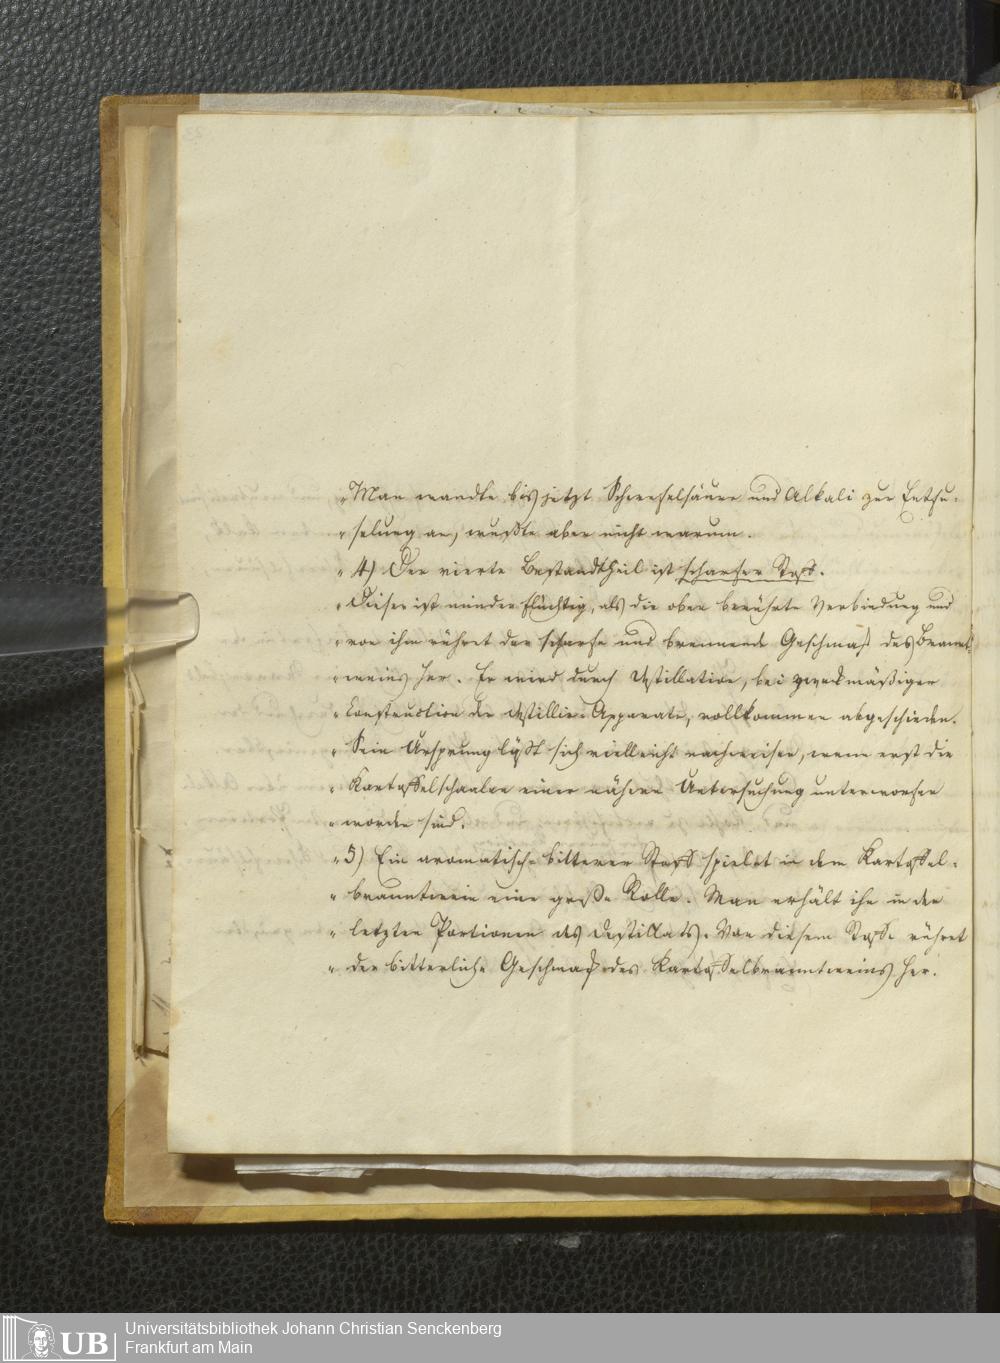 „Man wandte bis jetzt Schwefelsäure und Alkali zur Entfu-
„selung an, wußte aber nicht warum.
„4) Der vierte Bestandtheil ist scharfer Stoff.
„Dieser ist minder flüchtig, als die oben berührte Verbindung und
„von ihm rühret der scharfe und brennende Geschmack des Brannt-
„weins her. Er wird durch Destillation, bei zweckmäßiger
„Construction der Destillir-Apparate, vollkommen abgeschieden.
„Sein Ursprung läßt sich vielleicht nachweisen, wenn erst die
„Kartoffelschaalen einer nähern Untersuchung unterworfen
„worden sind.
„5) Ein aromatisch-bitterer Stoff spielet in dem Kartoffel-
„branntwein eine große Rolle. Man erhält ihn in den
„letzten Portionen des Destillats. Von diesem Stoffe rühret
„der bitterliche Geschmack des Kartoffelbranntweins her.
UB
Universitätsbibliothek Johann Christian Senckenberg
Frankfurt am Main